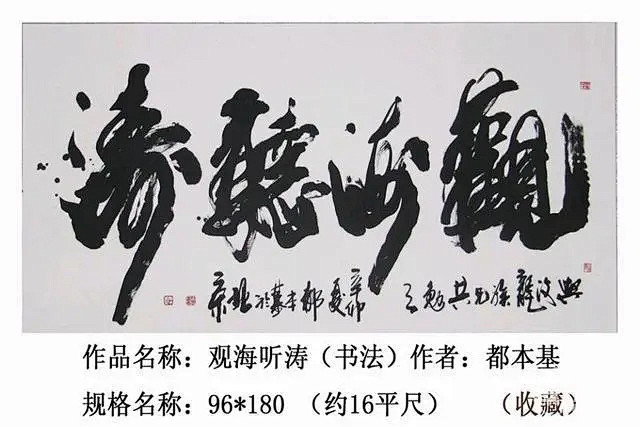 觀海聽濤
與海龍族兄共勉之 辛卯夏都本基於北京
作品名称：观海听涛（书法）作者：都本基
规格名称：96*180 （约16平尺） （收藏）